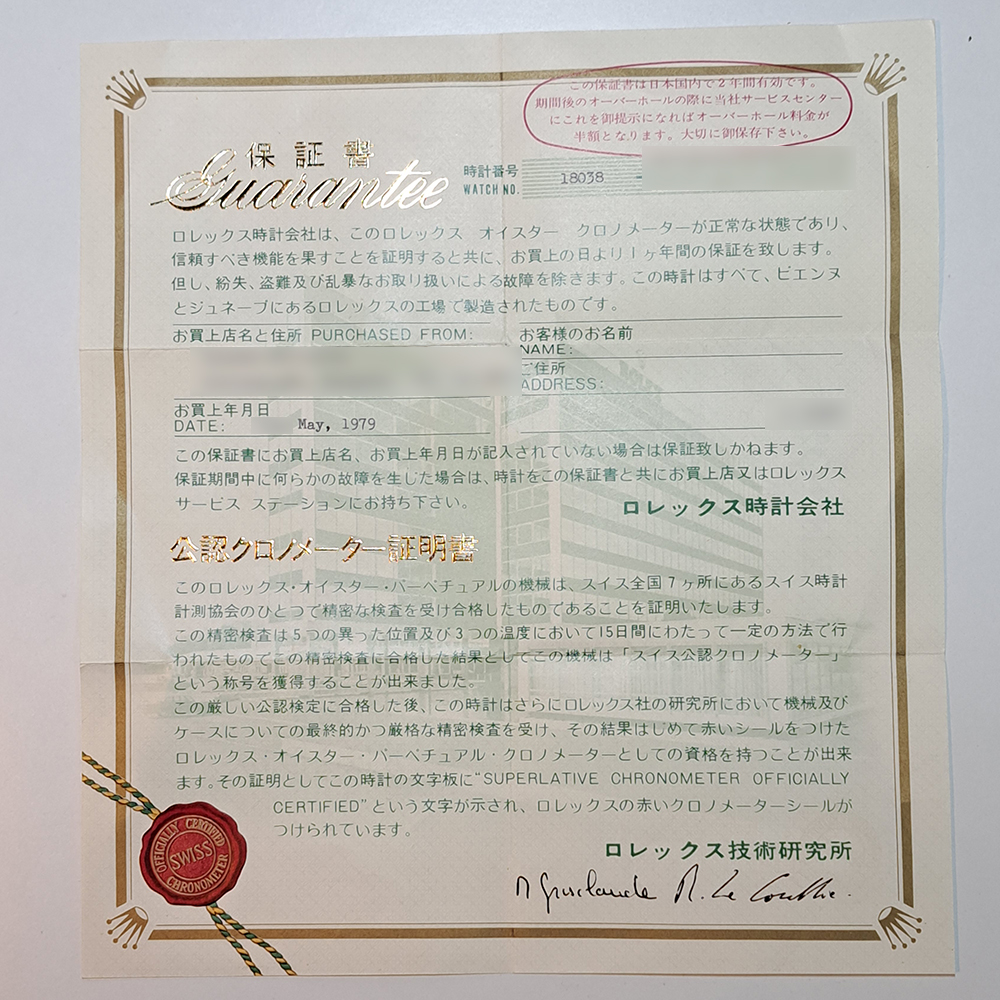 この保証書は日本国内で2年間有効です。
期間後のオーバーホールの際に当社サービスセンター
にこれを御提示になればオーバーホール料金が
半額となります。大切に御保存下さい。
保証書
Guarantee
時計番号
WATCH NO.
18038 -
ロレックス時計会社は、このロレックス オイスター クロノメーターが正常な状態であり、
信頼すべき機能を果すことを証明すると共に、お買上の日より1ヶ年間の保証を致します。
但し、紛失、盗難及び乱暴なお取り扱いによる故障を除きます。この時計はすべて、ビエンヌ
とジュネーブにあるロレックスの工場で製造されたものです。
お買上店名と住所 PURCHASED FROM:
お客様のお名前
NAME:
ご住所
ADDRESS:
お買上年月日
DATE: May, 1979
この保証書にお買上店名、お買上年月日が記入されていない場合は保証致しかねます。
保証期間中に何らかの故障を生した場合は、時計をこの保証書と共にお買上店又はロレックス
サービス ステーションにお持ち下さい。
ロレックス時計会社
公認クロノメーター証明書
このロレックス・オイスター・パーペチュアルの機械は、スイス全国7ヶ所にあるスイス時計
計測協会のひとつで精密な検査を受け合格したものであることを証明いたします。
この精密検査は5つの異った位置及び3つの温度において15日間にわたって一定の方法で行
われたものでこの精密検査に合格した結果としてこの機械は「スイス公認クロノメーター」
という称号を獲得することが出来ました。
この厳しい公認検定に合格した後、この時計はさらにロレックス社の研究所において機械及び
ケースについての最終的かつ厳格な精密検査を受け、その結果はじめて赤いシールをつけた
ロレックス・オイスター・パーペチュアル・クロノメーターとしての資格を持つことが出来
ます。その証明としてこの時計の文字板に“SUPERLATIVE CHRONOMETER OFFICIALLY
CERTIFIED”という文字が示され、ロレックスの赤いクロノメーターシールが
つけられています。
ロレックス技術研究所
OFFICIALLY CERTIFIED
SWISS
CHRONOMETER